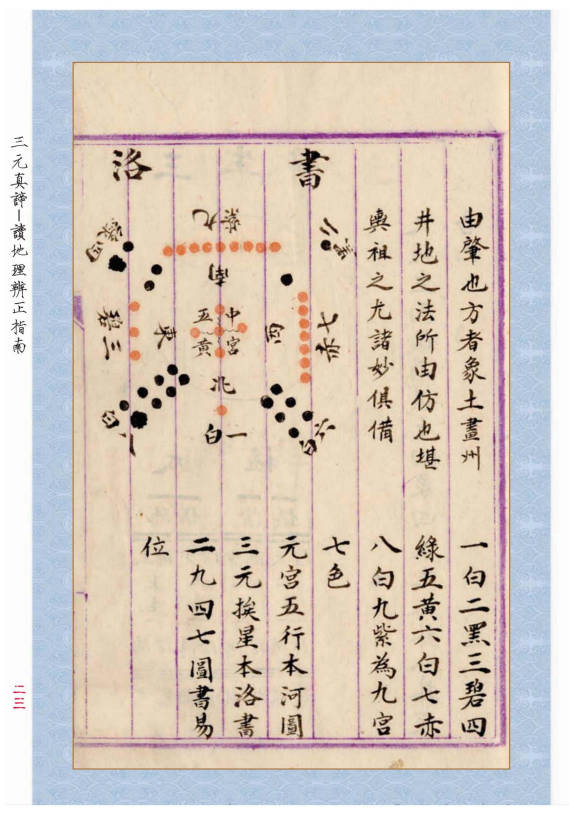 三元真諦－讀地理辨正指南
二三
洛書
由肇也方者象土畫州
井地之法所由仿也堪
輿祖之尤諸妙俱備
九紫
南
二黑
四綠
七赤
西
中宮
五黃
東
三碧
北
一白
六白
八白
一白二黑三碧四
綠五黃六白七赤
八白九紫為九宮
七色
元宮五行本河圖
三元挨星本洛書
二九四七圖書易
位